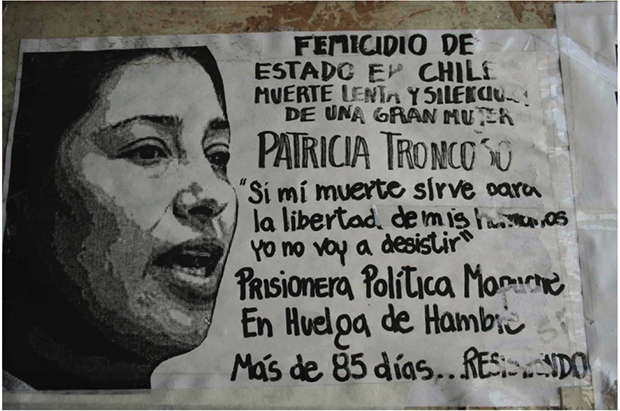 FEMICIDIO DE
ESTADO EN CHILE
MUERTE LENTA Y SILENCIOSA
DE UNA GRAN MUJER
PATRICIA TRONCOSO
"Si mi muerte sirve para
la libertad de mis hermanos
yo no voy a desistir"
PRISIONERA POLÍTICA MAPUCHE
EN HUELGA DE HAMBRE
MÁS DE 85 días...RESISTIENDO